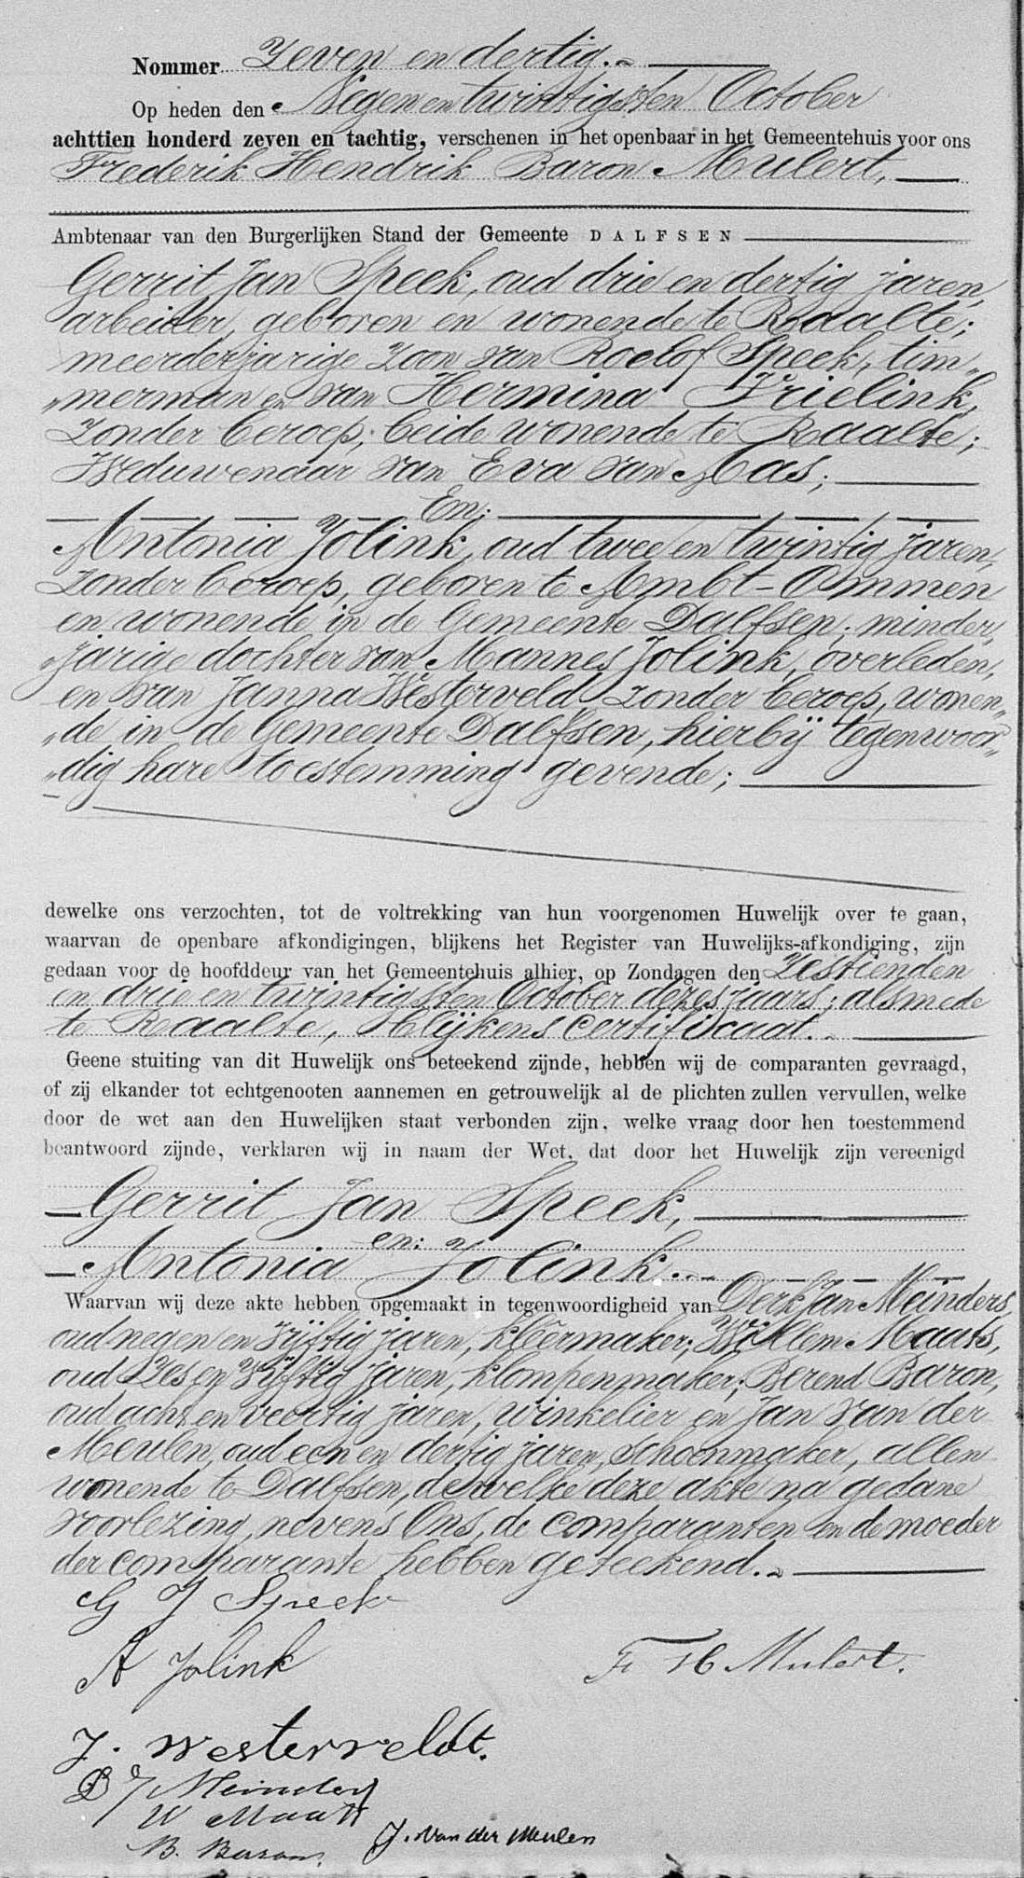 Nommer Zeven en dertig.
Op heden den Negen en twintigsten October
achttien honderd zeven en tachtig, verschenen in het openbaar in het Gemeentehuis voor ons
Frederik Hendrik Baron Mulert,
Ambtenaar van den Burgerlijken Stand der Gemeente DALFSEN
Gerrit Jan Speek, oud drie en dertig jaren,
arbeider, geboren en wonende te Raalte;
meerderjarige Zoon van Roelof Speek, tim„
„merman en van Hermina Frielink,
Zonder beroep; beide wonende te Raalte;
Weduwenaar van Eva van Maas;
En;
Antonia Jolink, oud twee en twintig jaren,
Zonder beroep, geboren te Ambt-Ommen
en wonende in de Gemeente Dalfsen; minder„
„jarige dochter van Mannes Jolink, overleden,
en van Janna Westerveld, zonder beroep, wonen„
„de in de Gemeente Dalfsen, hierbij tegenwoor„
„dig hare toestemming gevende;
dewelke ons verzochten, tot de voltrekking van hun voorgenomen Huwelijk over te gaan,
waarvan de openbare afkondigingen, blijkens het Register van Huwelijks-afkondiging, zijn
gedaan voor de hoofddeur van het Gemeentehuis alhier, op Zondagen den Zestienden
en drie en twintigsten October dezes jaars; alsmede
te Raalte, blijkens certifikaat.
Geene stuiting van dit Huwelijk ons beteekend zijnde, hebben wij de comparanten gevraagd,
of zij elkander tot echtgenooten aannemen en getrouwelijk al de plichten zullen vervullen, welke
door de wet aan den Huwelijken staat verbonden zijn, welke vraag door hen toestemmend
beantwoord zijnde, verklaren wij in naam der Wet, dat door het Huwelijk zijn vereenigd
Gerrit Jan Speek,
en:
Antonia Jolink.
Waarvan wij deze akte hebben opgemaakt in tegenwoordigheid van Derk Jan Meinders,
oud negen en vijftig jaren, kleermaker; Willem Maats,
oud Zes en vijftig jaren, klompenmaker; Berend Baron,
oud acht en veertig jaren, winkelier en Jan van der
Meulen, oud een en dertig jaren, schoenmaker, allen
wonende te Dalfsen, dewelke deze akte na gedane
voorlezing, nevens Ons, de comparanten en de moeder
der comparante hebben geteekend.
G J Speek
A Jolink
F. H. Mulert.
J. Westerveldt.
D J Meinders
W Maats
B. Baron.
J. van der Meulen